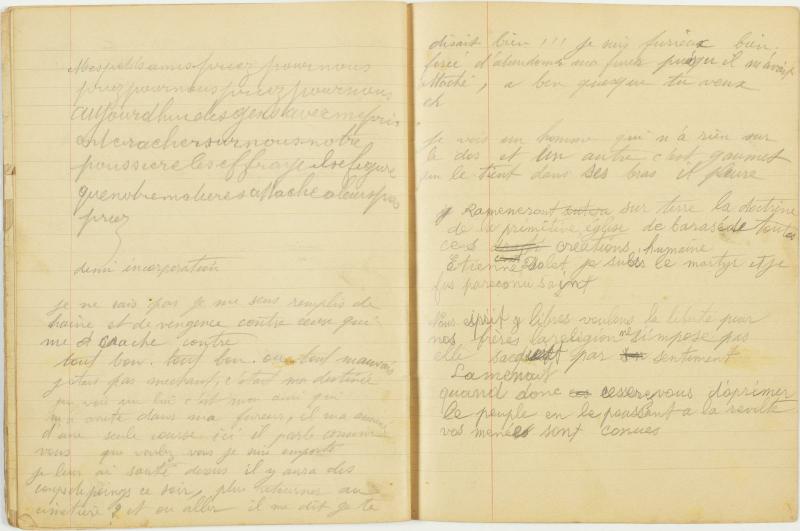 Mespetitsamispriezpournous
priezpournouspriezpournous
aujourdhuidesgensavecmepri
ontcrachersurnousnotre
poussierelesEffraye ilsefigure
quenotrematieresattache a leurs pas
priez
demi incorporation
je ne sais pas je me sens remplis de
haine et de vengence contre ceux qui
me crache contre
tout bon. tout bon. ou tout mauvais
j etais pas mechant, c'etait ma destinée
un lui c'est mon ami qui
m'a dans ma fureur, il m'a
d'une seule course ici il parle comme
vous que voulez vous je suis emporté
je leur ai sauté dessus il y aura des
coups de poings ce soir, plus retourner au
cimetière ? et ou aller il me dit je te
disait bien !!! je suis furieux bien,
forcé d'abandonner ma puisqu il m'avait
attaché, a ben quesque tu veux
eh
je vois un homme qui n'a rien sur
le dos et un autre c'est gaumet
qui le tient dans ses bras il pleure
Rameneront sur terre la doctrine
de la primitive église de barasé de toutes
ces créations humaine
Etienne Dolet je subis le martyr et je
fus pas reconu saint
Nous esprit libres voulons la liberté pour
nos frères la religion ne s'impose pas
elle par sentiment
Lamenait
quand donc cesserez vous d'oprimer
le peuple en le poussant a la révolte
vos menées sont conues